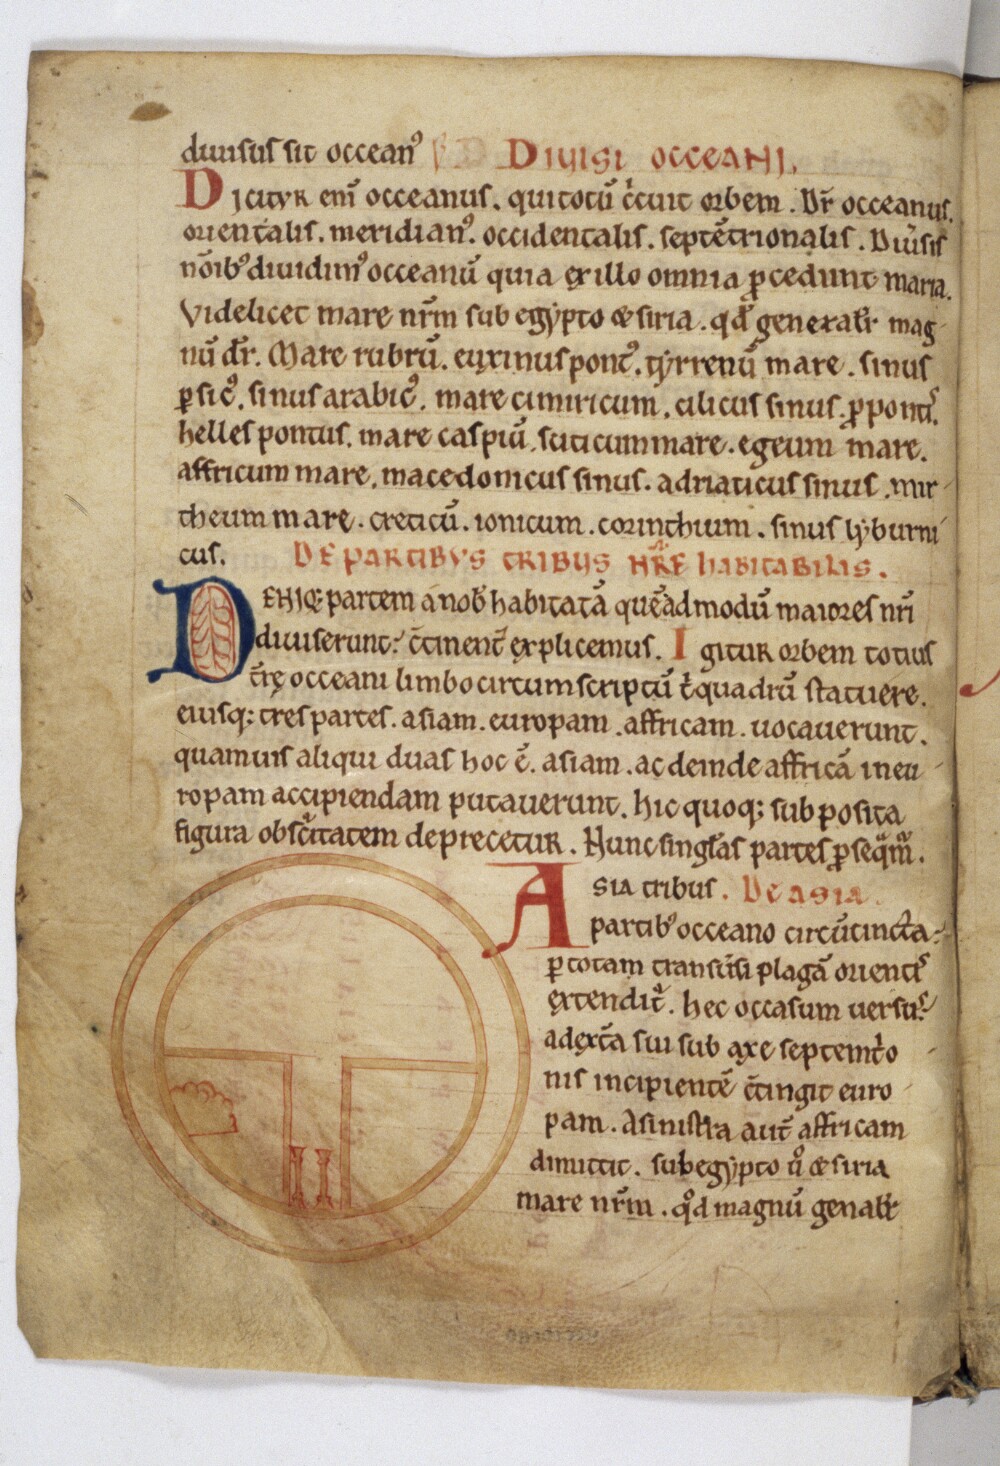 diuisus sit occeanꝰ DIUISI OCCEANI.
Dicitur eni̅ occeanus. qui totu̅ c̅cuit orbem. Dr̅ occeanus.
orientalis. meridianꝰ. occidentalis. septe̅trionalis. Diu̅sis
no̅ibꝰ diuidimꝰ occeanu̅ quia ex illo omnia ꝓcedunt maria.
Videlicet mare nr̅m sub egẏpto & siria. qd̅ generalr̅ mag-
nu̅ dr̅. Mare rubru̅. euxinus pontꝰ. tẏrrenu̅ mare. sinus
ꝑsicꝰ. sinus arabicꝰ. mare cimiricum. cilicus sinus. ꝓpontꝰ.
helles pontus. mare caspiu̅. sciticum mare. egeum mare.
affricum mare. macedonicus sinus. adriaticus sinus. mir-
theum mare. creticu̅. ionicum. corinthium. sinus lẏburni-
cus. DE PARTIBVS TRIBUS NRE HABITABILIS.
DENIQ; partem a nob̅ habitata̅ que̅admodu̅ maiores nr̅i
diuiserunt: c̅tinent̅ explicemus. Igitur orbem totius
t̅rę occeani limbo circumscriptu̅ t̅quadru̅ statuere.
eiusq; tres partes. asiam. europam. affricam. uocauerunt.
quamuis aliqui duas hoc e̅. asiam. ac deinde affrica̅ in eu-
ropam accipiendam putauerunt. hic quoq; sub posita
figura obsc̅itatem deprecetur. Nunc sing̅las partes ꝑseq̅m̅.
Asia tribus. De asia.
partibꝰ occeano circu̅cincta:
ꝑ totam transu̅si plaga̅ orientꝭ
extendit̅. hec occasum uersuꝰ
a dext̅a sui sub axe septemt̅o-
nis incipiente̅ c̅tingit euro-
pam. A sinistra aut̅ affricam
dimittit. sub egẏpto u̅ & siria
mare nr̅m. qd̅ magnu̅ genalr̅